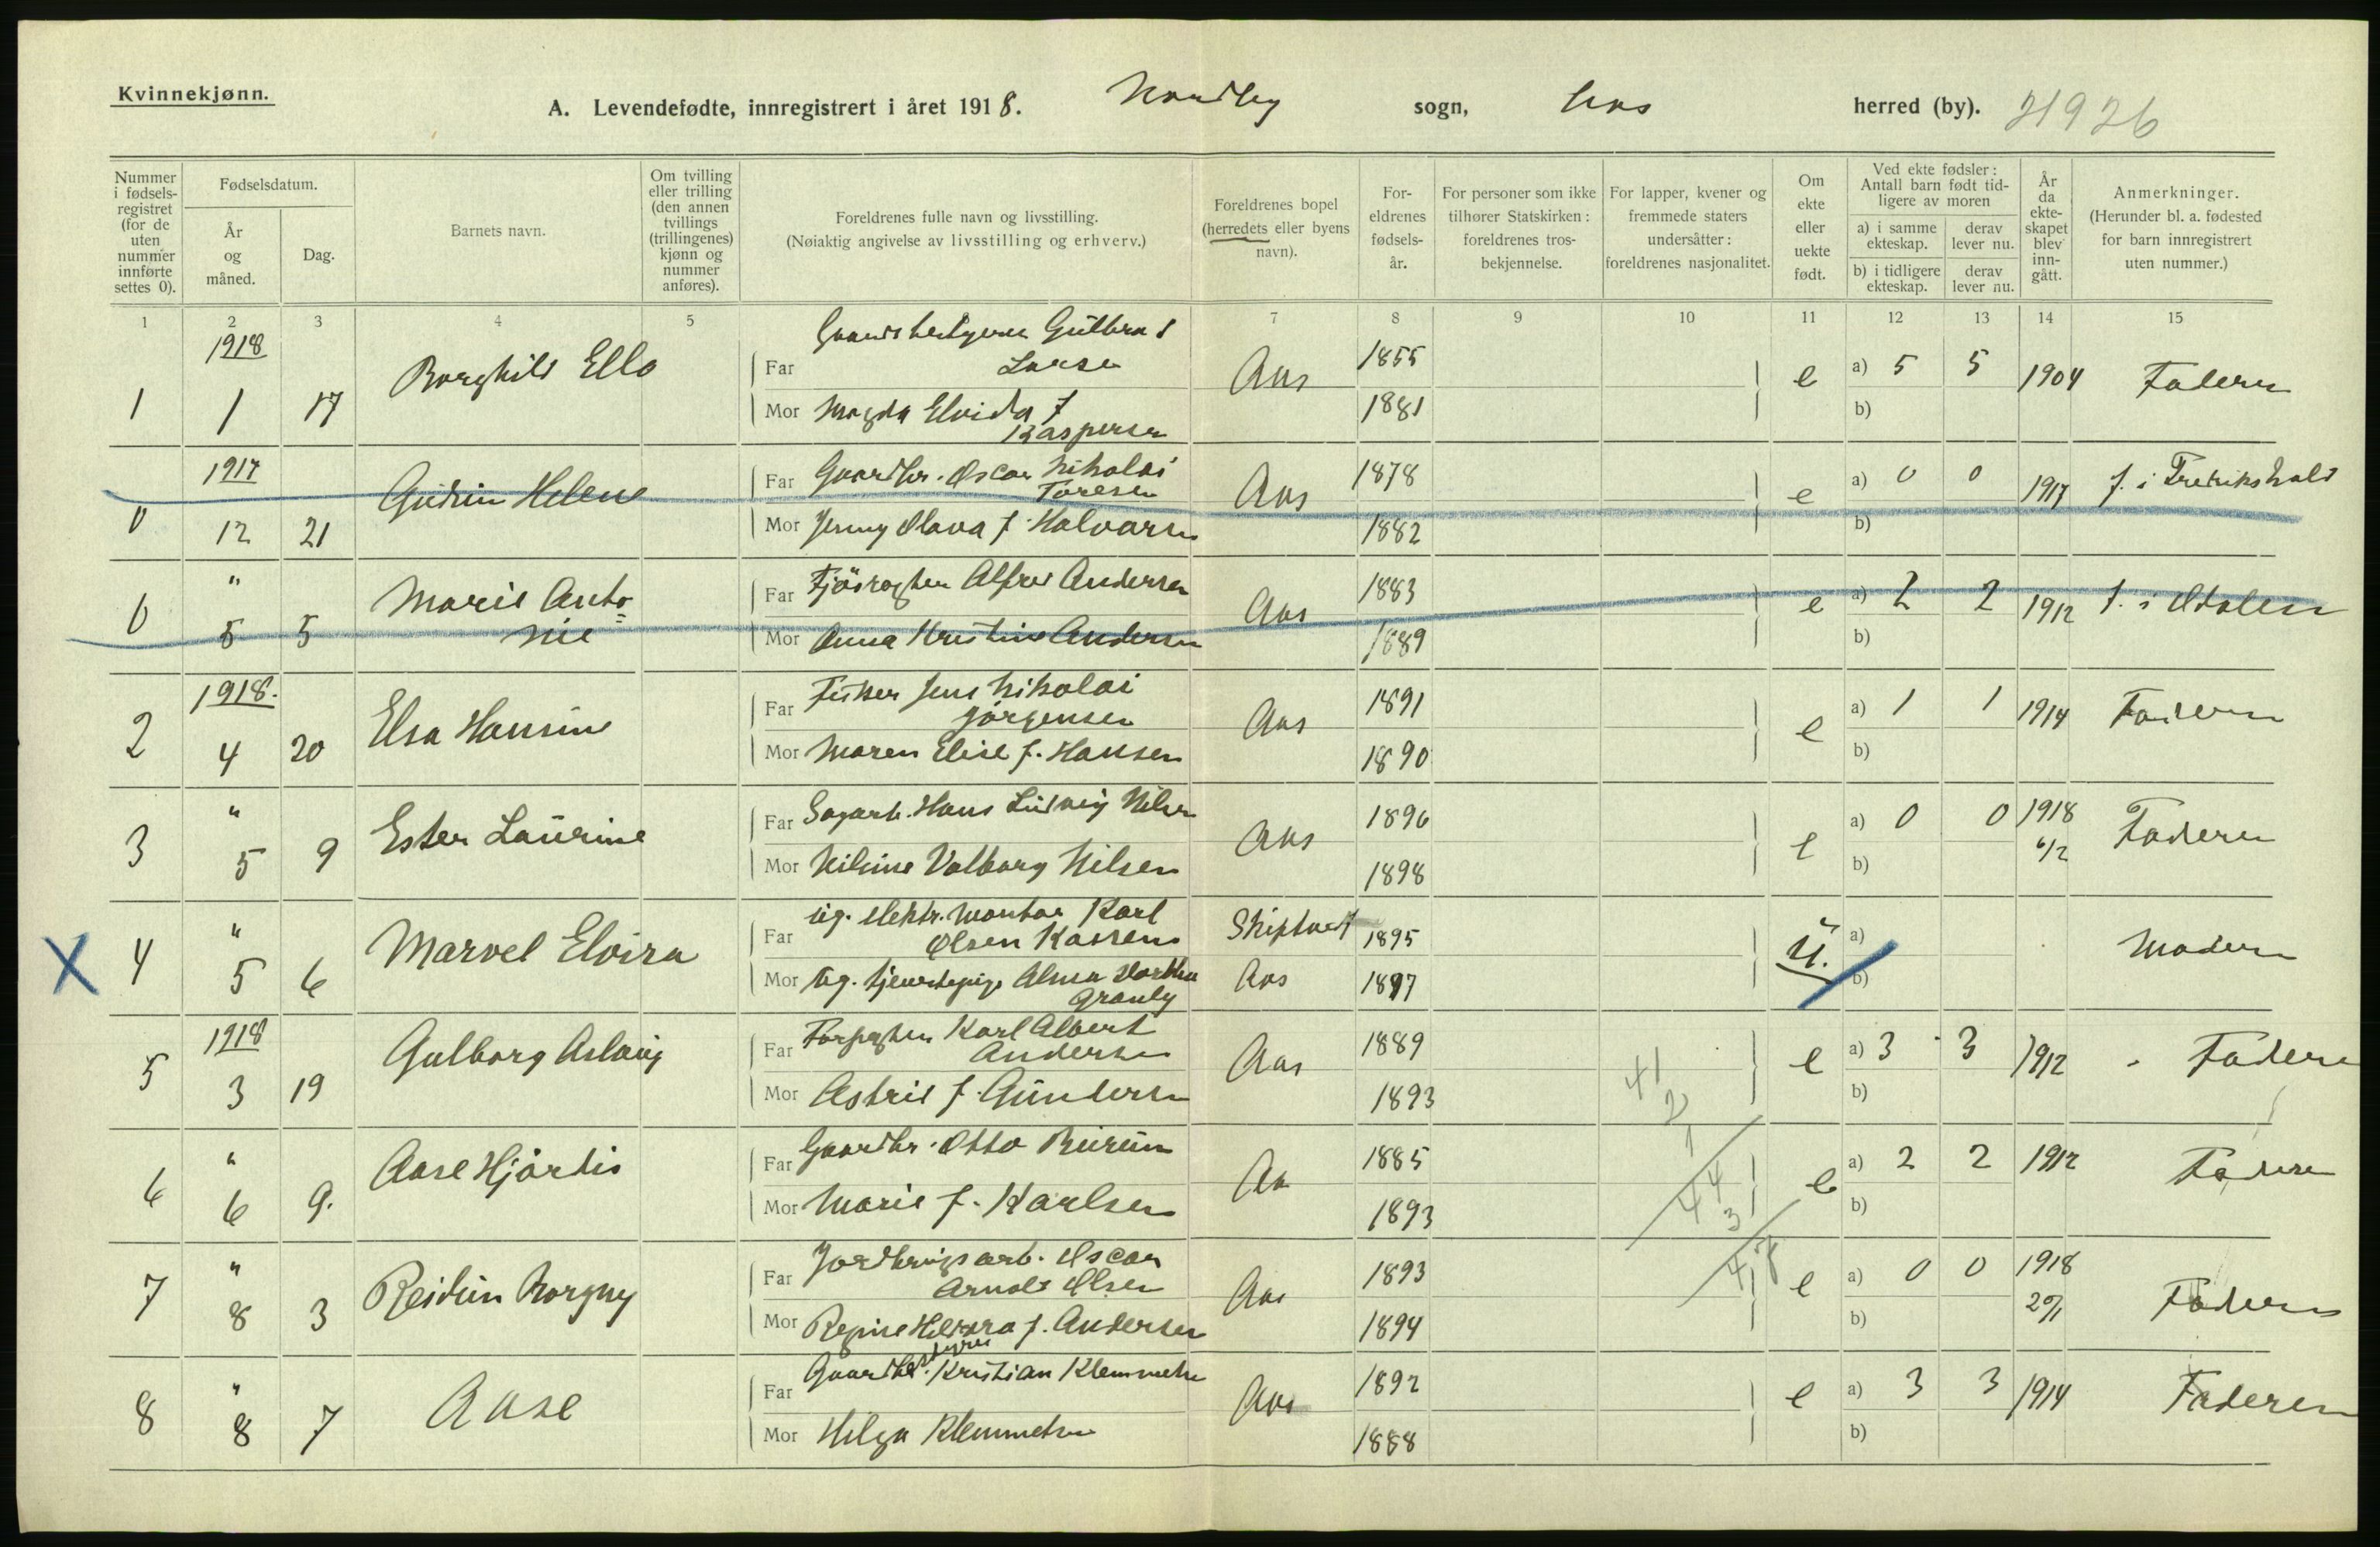 Kvinnekjønn.
A. Levendefødte, innregistrert i året 1918. Nordby sogn, Aas herred (by). 21926
Nummer i fødselsregistret (for de uten nummer innførte settes 0).
Fødselsdatum.
År og måned.
Dag.
Barnets navn.
Om tvilling eller trilling (den annen tvillings (trillingenes) kjønn og nummer anføres).
Foreldrenes fulle navn og livsstilling.
(Nøiaktig angivelse av livsstilling og erhverv.)
Foreldrenes bopel (herredets eller byens navn).
Foreldrenes fødselsår.
For personer som ikke tilhører Statskirken: foreldrenes trosbekjennelse.
For lapper, kvener og fremmede staters undersåtter: foreldrenes nasjonalitet.
Om ekte eller uekte født.
Ved ekte fødsler: Antall barn født tidligere av moren
a) i samme ekteskap.
derav lever nu.
b) i tidligere ekteskap.
derav lever nu.
År da ekteskapet blev inngått.
Anmerkninger.
(Herunder bl. a. fødested for barn innregistrert uten nummer.)
1 2 3 4 5 7 8 9 10 11 12 13 14 15
1 1918 1 17 Borghild Ella
Far Gaardbestyrer Gulbrand Larsen Aas 1855
Mor Magda Elvida f. Kaspersen 1881
e a) 5 5 b) 1904 Faderen
0 1917 12 21 Gudrun Helene
Far Gaardbr. Oscar Nikolai Toresen Aas 1878
Mor Jenny Olava f. Halvorsen 1882
e a) 0 0 b) 1917 f. i Fredrikshald
0 " 5 5 Marie Antonie
Far Fjøsrøgter Alfred Andersen Aas 1883
Mor Anna Kristine Andersen 1889
e a) 2 2 b) 1912 f. i
2 1918. 4 20 Elsa Hansine
Far Fisker Jens Nikolai Jørgensen Aas 1891
Mor Maren Elise f. Hansen 1890
e a) 1 1 b) 1914 Faderen
3 " 5 9 Ester Laurine
Far Sagarb. Hans Ludvig Nilsen Aas 1896
Mor Nilsine Valborg Nilsen 1898
e a) 0 0 b) 1918 6/2 Faderen
X 4 " 5 6 Marvel Elvira
Far ug. elektr. montør Karl Olsen Skiptvet 1895
Mor ug. tjenestepige Alma Granly Aas 1897
U. a) b) Moderen
5 1918 3 19 Gulborg Aslaug
Far Karl Albert Andersen Aas 1889
Mor Astrid f. Gundersen 1893
e a) 3 3 b) 1912 Faderen
41
2
1
44
3
47
8
6 " 6 9. Aase Hjørdis
Far Gaardbr. Otto Burum Aas 1885
Mor Marie f. Karlsen 1893
e a) 2 2 b) 1912 Faderen
7 " 8 3 Reidun Borgny
Far Jordbrugsarb. Oscar Arnold Olsen Aas 1893
Mor Regine f. Andersen 1894
e a) 0 0 b) 1918 20/1 Faderen
8 " 8 7 Aase
Far Gaardbestyrer Kristian Klemmetsen Aas 1892
Mor Helga Klemmetsen 1888
e a) 3 3 b) 1914 Faderen